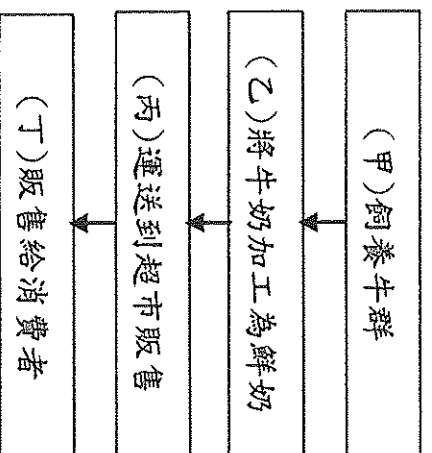 (甲)飼養牛群
(乙)將牛奶加工為鮮奶
(丙)運送到超市販售
(丁)販售給消費者